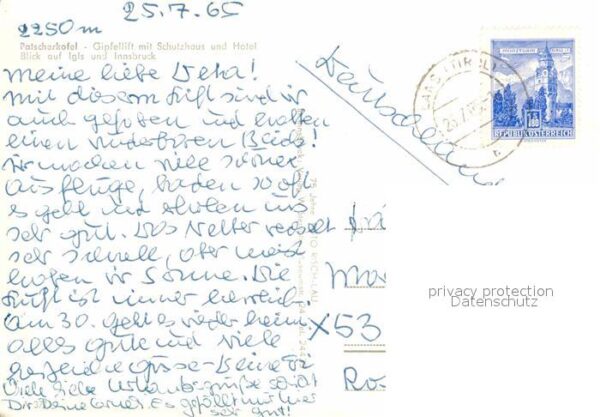 25.7.65
2250 m
Patscherkofel - Gipfellift mit Schutzhaus und Hotel
Blick auf Igls und Innsbruck
Meine liebe
Mit diesem Lift sind wir
auch gefahren und hatten
einen wunderbaren Blick!
Wir machen viele schöne
Ausflüge, baden so oft
es geht und erholen uns
sehr gut. Das Wetter wechselt
sehr schnell, aber meist
haben wir Sonne. Die
Luft ist immer herrlich.
Am 30. geht es wieder heim
alles gute und viele
Grüsse
Viele liebe Urlaubsgrüße
Dir Deine Es gefällt mir hier
sehr gut!
Deutschland
REPUBLIK ÖSTERREICH
Ma
X53
Ro
privacy protection
Datenschutz